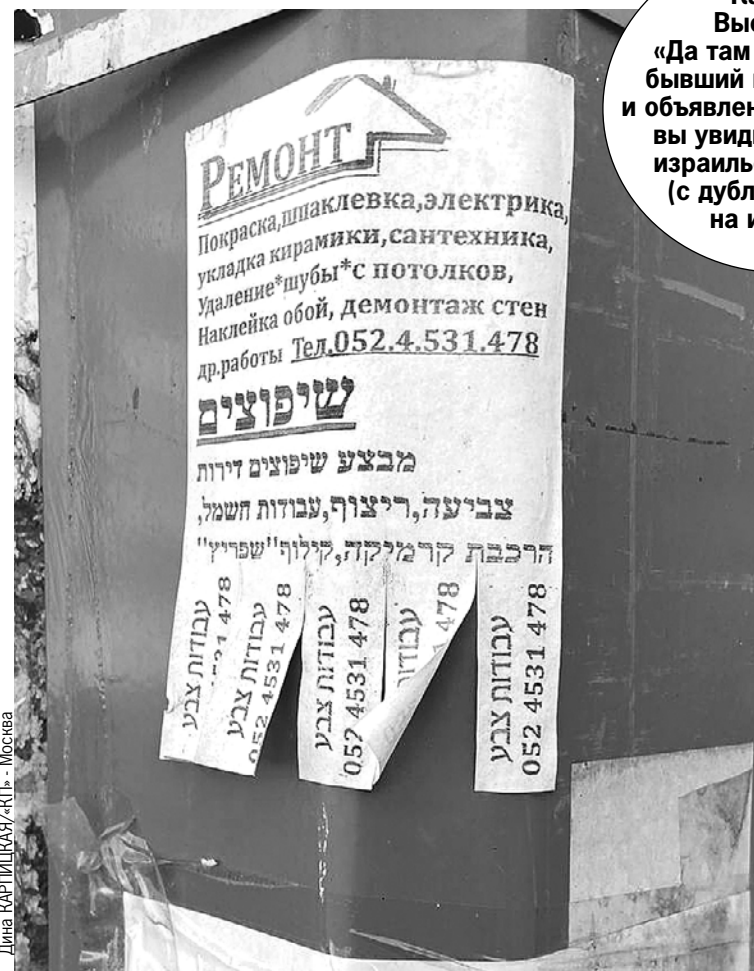 Выс
«Да там
бывший
и объявлен
вы увиди
израиль
(с дубл
на и
РЕМОНТ
Покраска,шпаклевка,электрика,
укладка кирамики,сантехника,
Удаление*шубы*с потолков,
Наклейка обой, демонтаж стен
др.работы Тел.052.4.531.478
שיפוצים
מבצע שיפוצים דירות
צביעה,ריצוף,עבודות חשמל,
הרכבת קרמיקה,קילוף"שפריץ"
עבודות צבע
478
עבודות צבע
052 4531 478
עבודות צבע
052 4531 478
עבודות
478
עבודות צבע
052 4531 478
Дина КАРПИЦКАЯ/«КП» - Москва